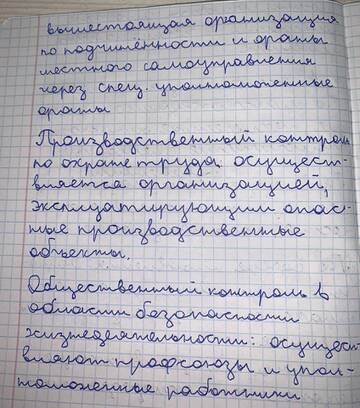 вышестоящая организация
по подчинённости и органы
местного самоуправления
через спец. уполномоченные
органы
Производственный контроль
по охране труда осущест-
вляется организацией,
эксплуатирующим опас-
ные производственные
объекты.
Общественный контроль в
области безопасности
жизнедеятельности: осущест-
вляют профсоюзы и упол-
номоженные работники